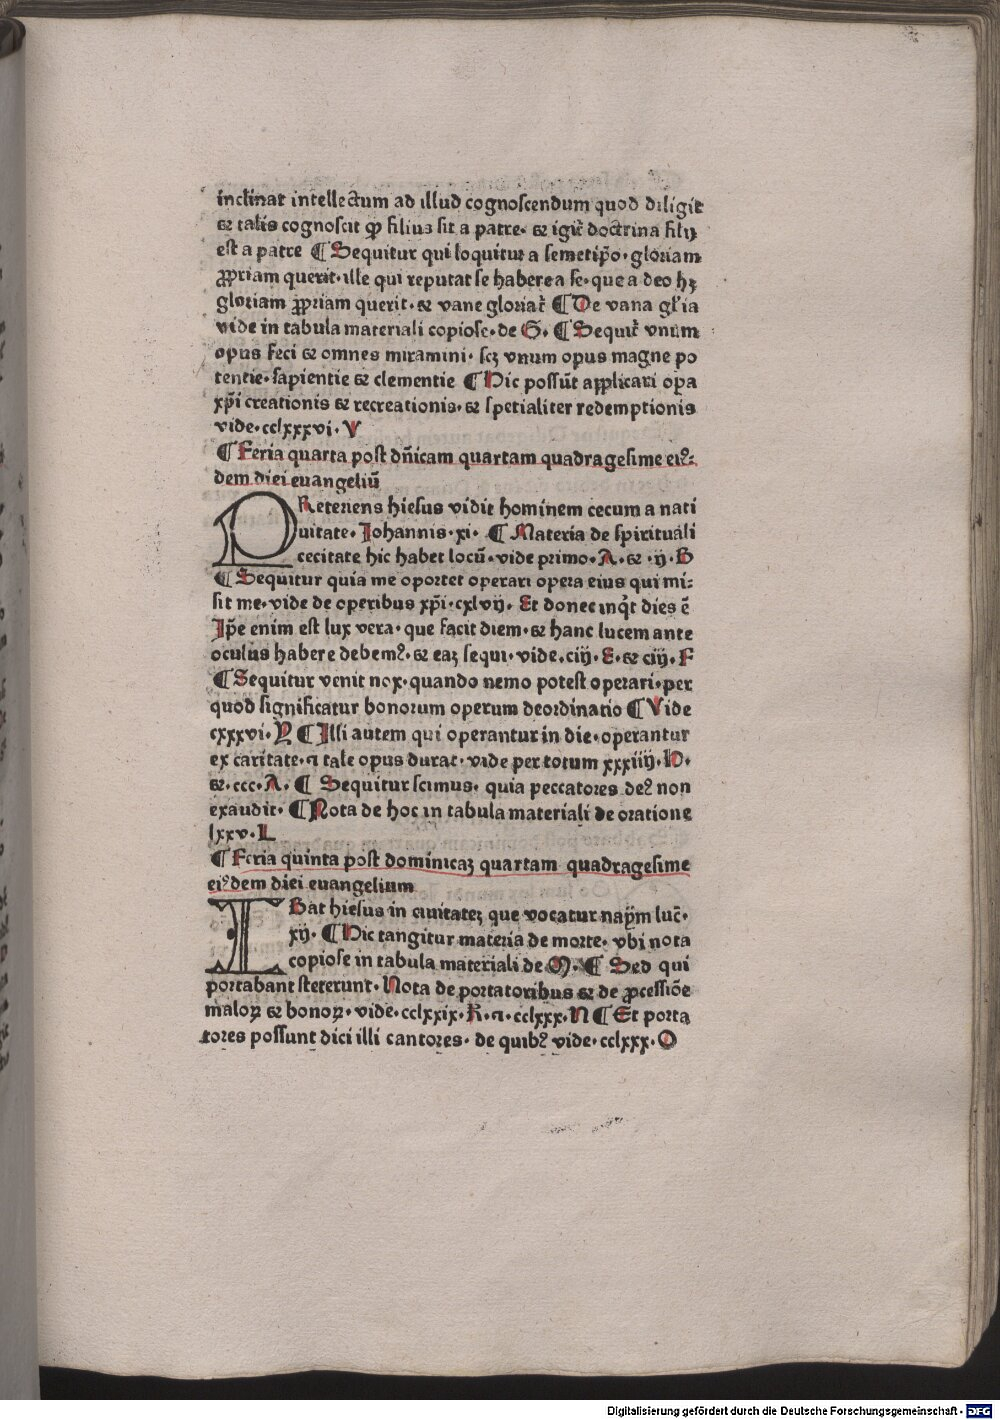 inclinat intellectum ad illud cognoscendum quod diligit
⁊ talis cognoscit ꝙ filius sit a patre· ⁊ igit̃ doctrina filij
est a patre ¶ Sequitur qui loquitur a semetip̃o· gloriam
ꝓpriam querit· ille qui reputat se habere a se· que a deo hꝫ
gloriam ꝓpriam querit· ⁊ vane gloriat̃ ¶ De vana gl̃ia
vide in tabula materiali copiose· de G· ¶ Sequit̃ vnum
opus feci ⁊ omnes miramini· scꝫ vnum opus magne po
tentie· sapientie ⁊ clementie ¶ Hic possũt applicari opa
xp̃i creationis ⁊ recreationis· ⁊ spetialiter redemptionis
vide· cclxxxvi· V
¶ Feria quarta post dñicam quartam quadragesime eiꝰ:
dem diei euangeliũ
PReteriens hiesus vidit hominem cecum a nati
uitate· Johannis· xi· ¶ Materia de spirituali
cecitate hic habet locũ· vide primo· A· ⁊ · ij· B
¶ Sequitur quia me oportet operari opera eius qui mi:
sit me· vide de operibus xp̃i· cxlvij· Et donec inq̃t dies ẽ
Ip̃e enim est lux vera· que facit diem· ⁊ hanc lucem ante
oculus habere debemꝰ· ⁊ eaꝫ sequi· vide· ciij· E· ⁊ ciij· F
¶ Sequitur venit nox· quando nemo potest operari· per
quod significatur bonorum operum deordinatio ¶ Vide
cxxxvi· P ¶ Illi autem qui operantur in die· operantur
ex caritate· ⁊ tale opus durat· vide per totum xxxiiij· D·
⁊· ccc· A· ¶ Sequitur scimus· quia peccatores deꝰ non
exaudit· ¶ Nota de hoc in tabula materiali de oratione
lxxv· L
¶ Feria quinta post dominicaꝫ quartam quadragesime
eiꝰdem diei euangelium
IBat hiesus in ciuitateꝫ que vocatur nayⁿm luc̃·
xij· ¶ Hic tangitur materia de morte· vbi nota
copiose in tabula materiali de M· ¶ Sed qui
portabant steterunt· Nota de portatoribus ⁊ de ꝓcessiõe
maloꝝ ⁊ bonoꝝ· vide· cclxxix· R· ⁊· cclxxx· N ¶ Et porta
tores possunt dici illi cantores· de quibꝰ vide· cclxxx· O
Digitalisierung gefördert durch die Deutsche Forschungsgemeinschaft · DFG